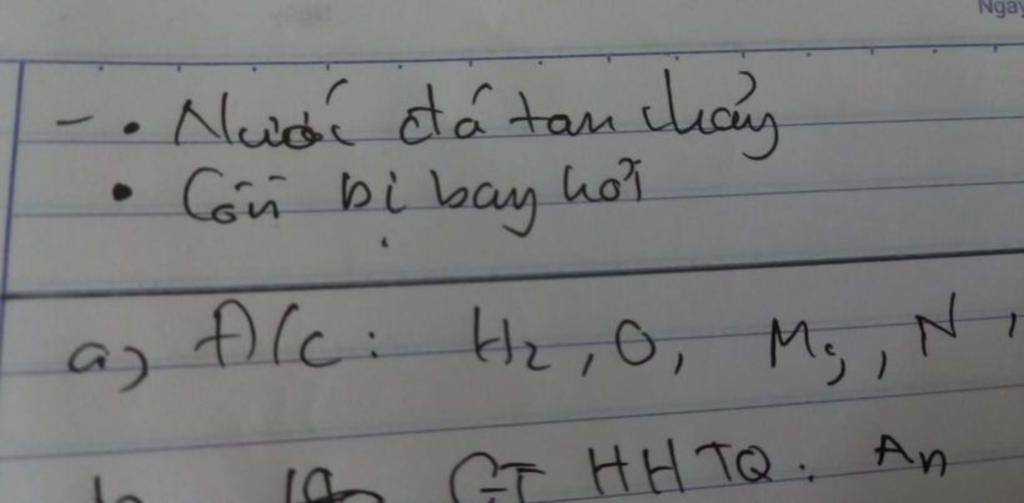 Ngày
- • Nước đá tan chảy
• Cồn bị bay hơi
a) Đ/c: H2, O, Mg, N,
CT HHTQ: An